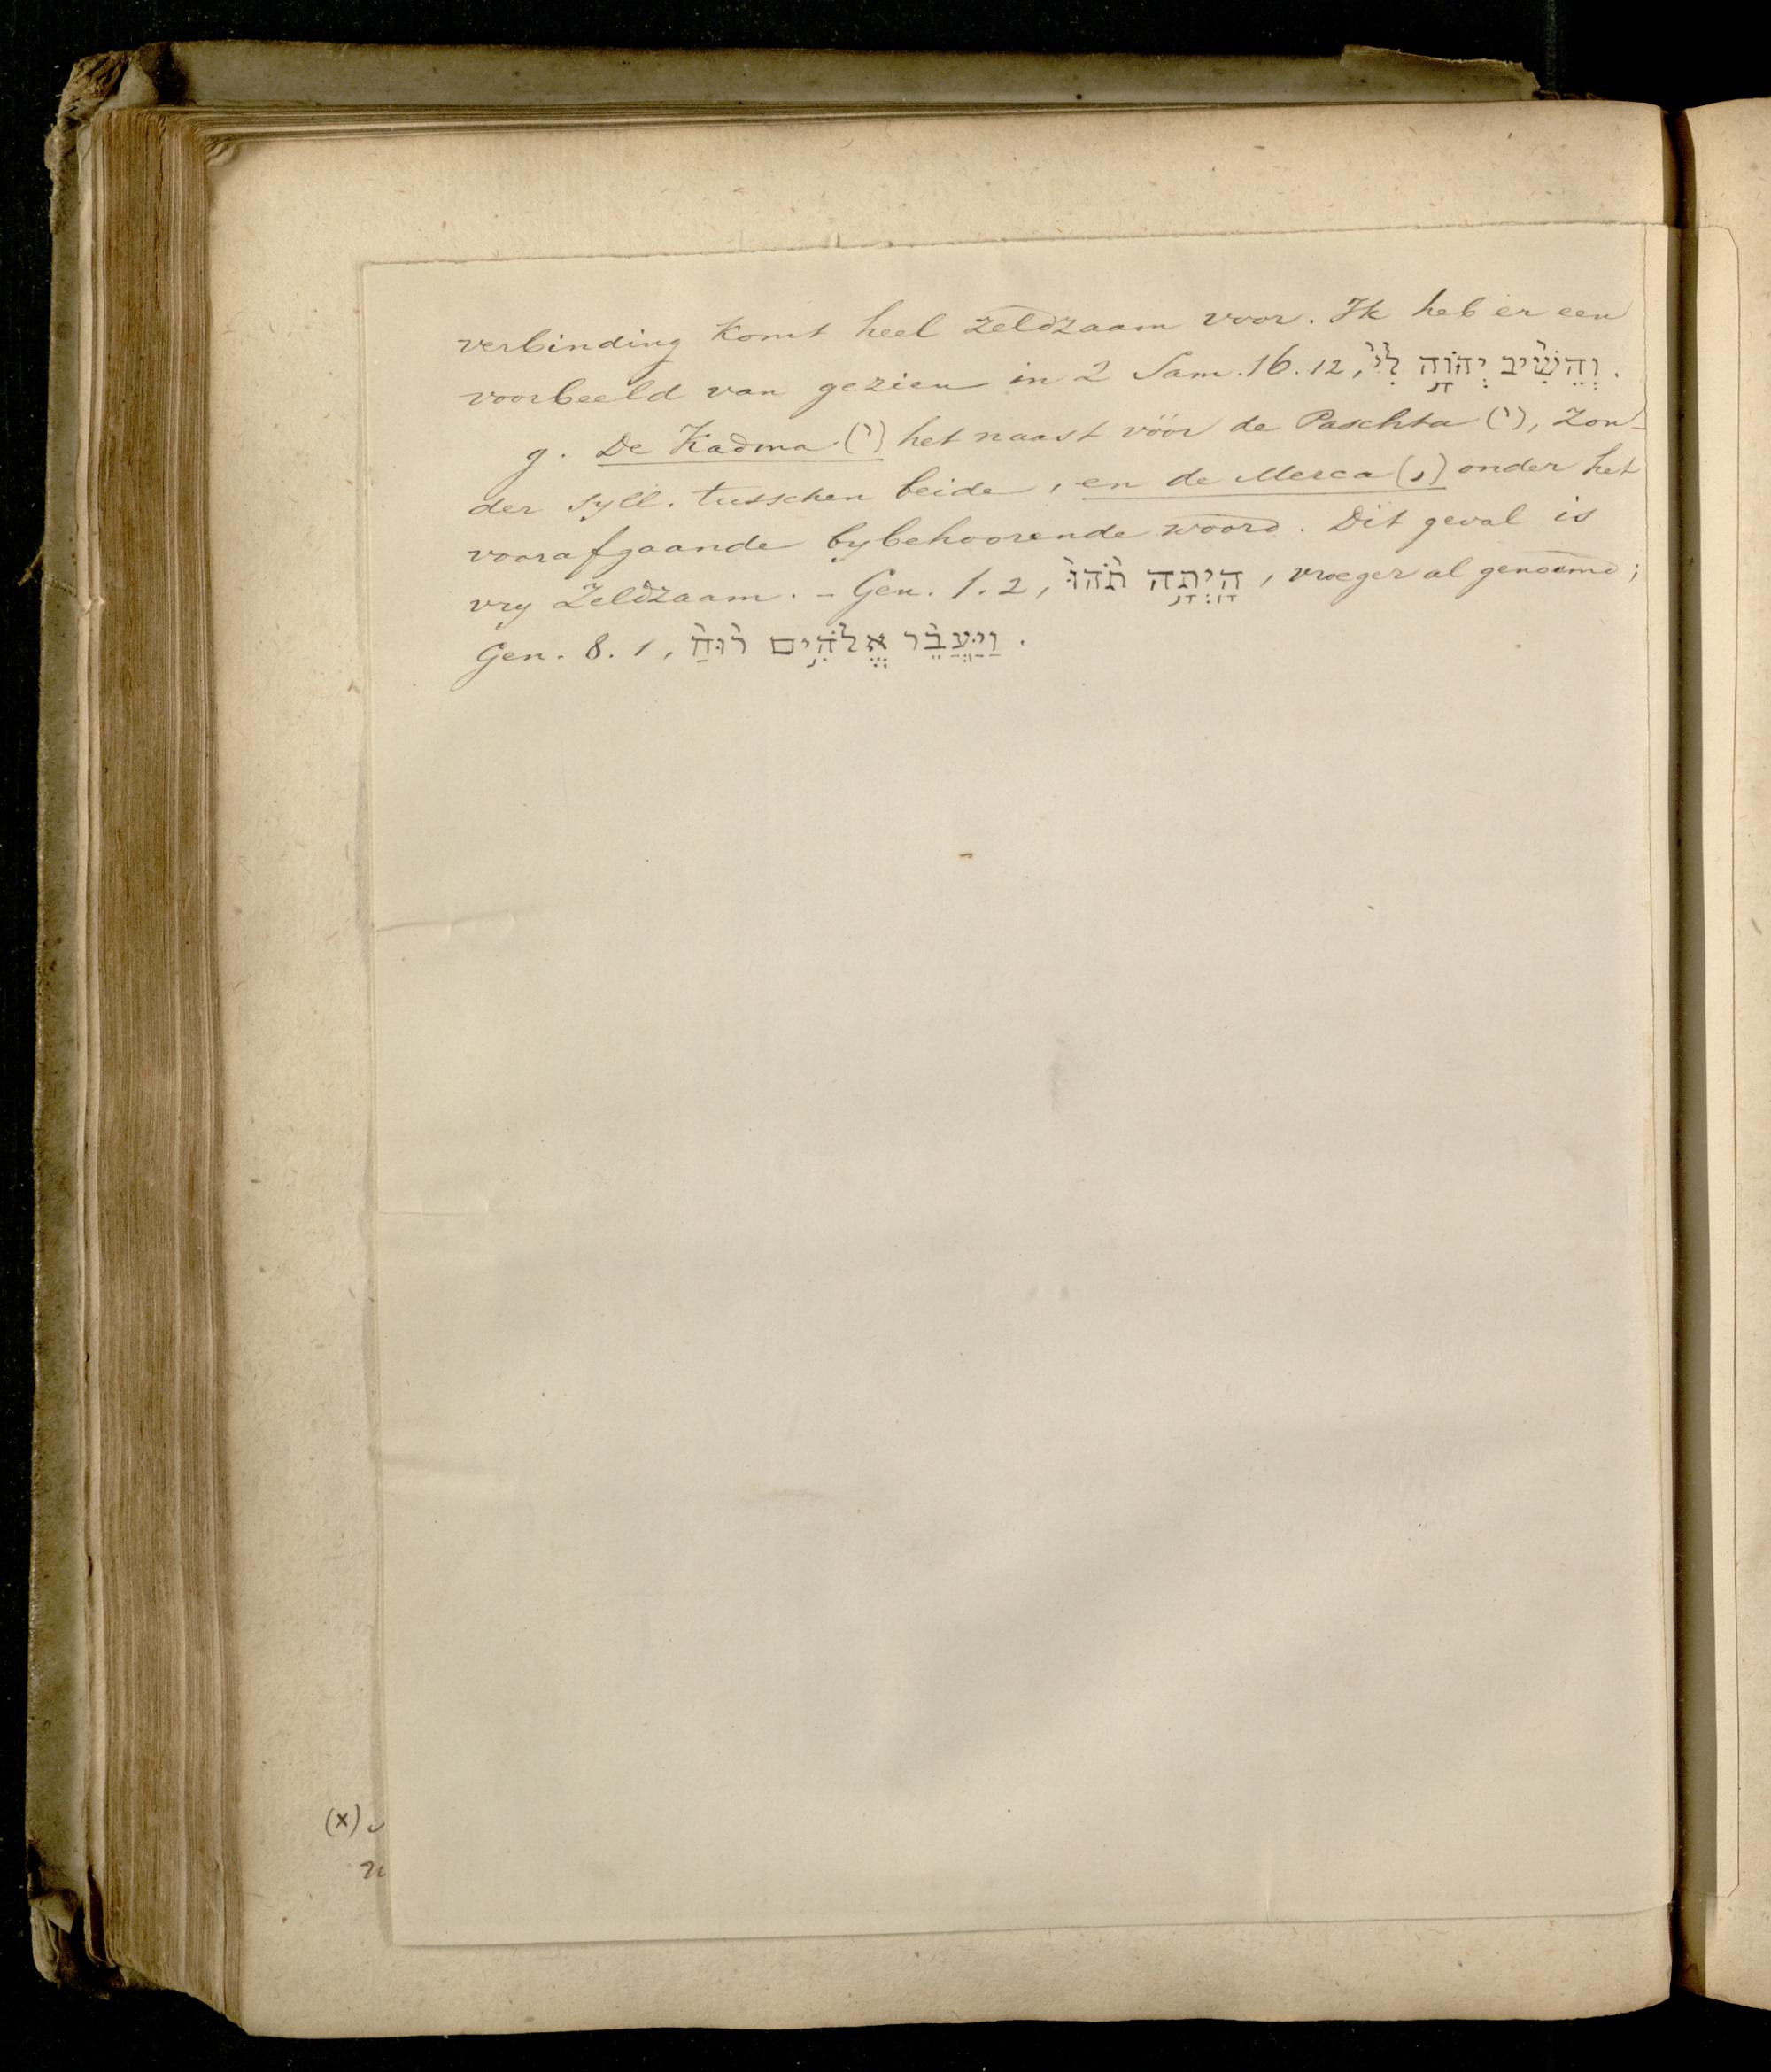 verbinding komt heel zeldzaam voor. Ik heb er een
voorbeeld van gezien in 2 Sam. 16. 12, וְהֵשִׁ֨יב יְהוָ֥ה לִי֙ .
g. De Kadma (֨) het naast vóór de Paschta (֙), zon-
der syll. tusschen beide, en de Merca (֥) onder het
voorafgaande bybehoorende woord. Dit geval is
vry zeldzaam. - Gen. 1. 2, הָיְתָ֥ה תֹ֨הוּ֙ , vroeger al genoemd;
Gen. 8. 1, וַיַּעֲבֵ֨ר אֱלֹהִ֥ים ר֨וּחַ֙ .
(x)